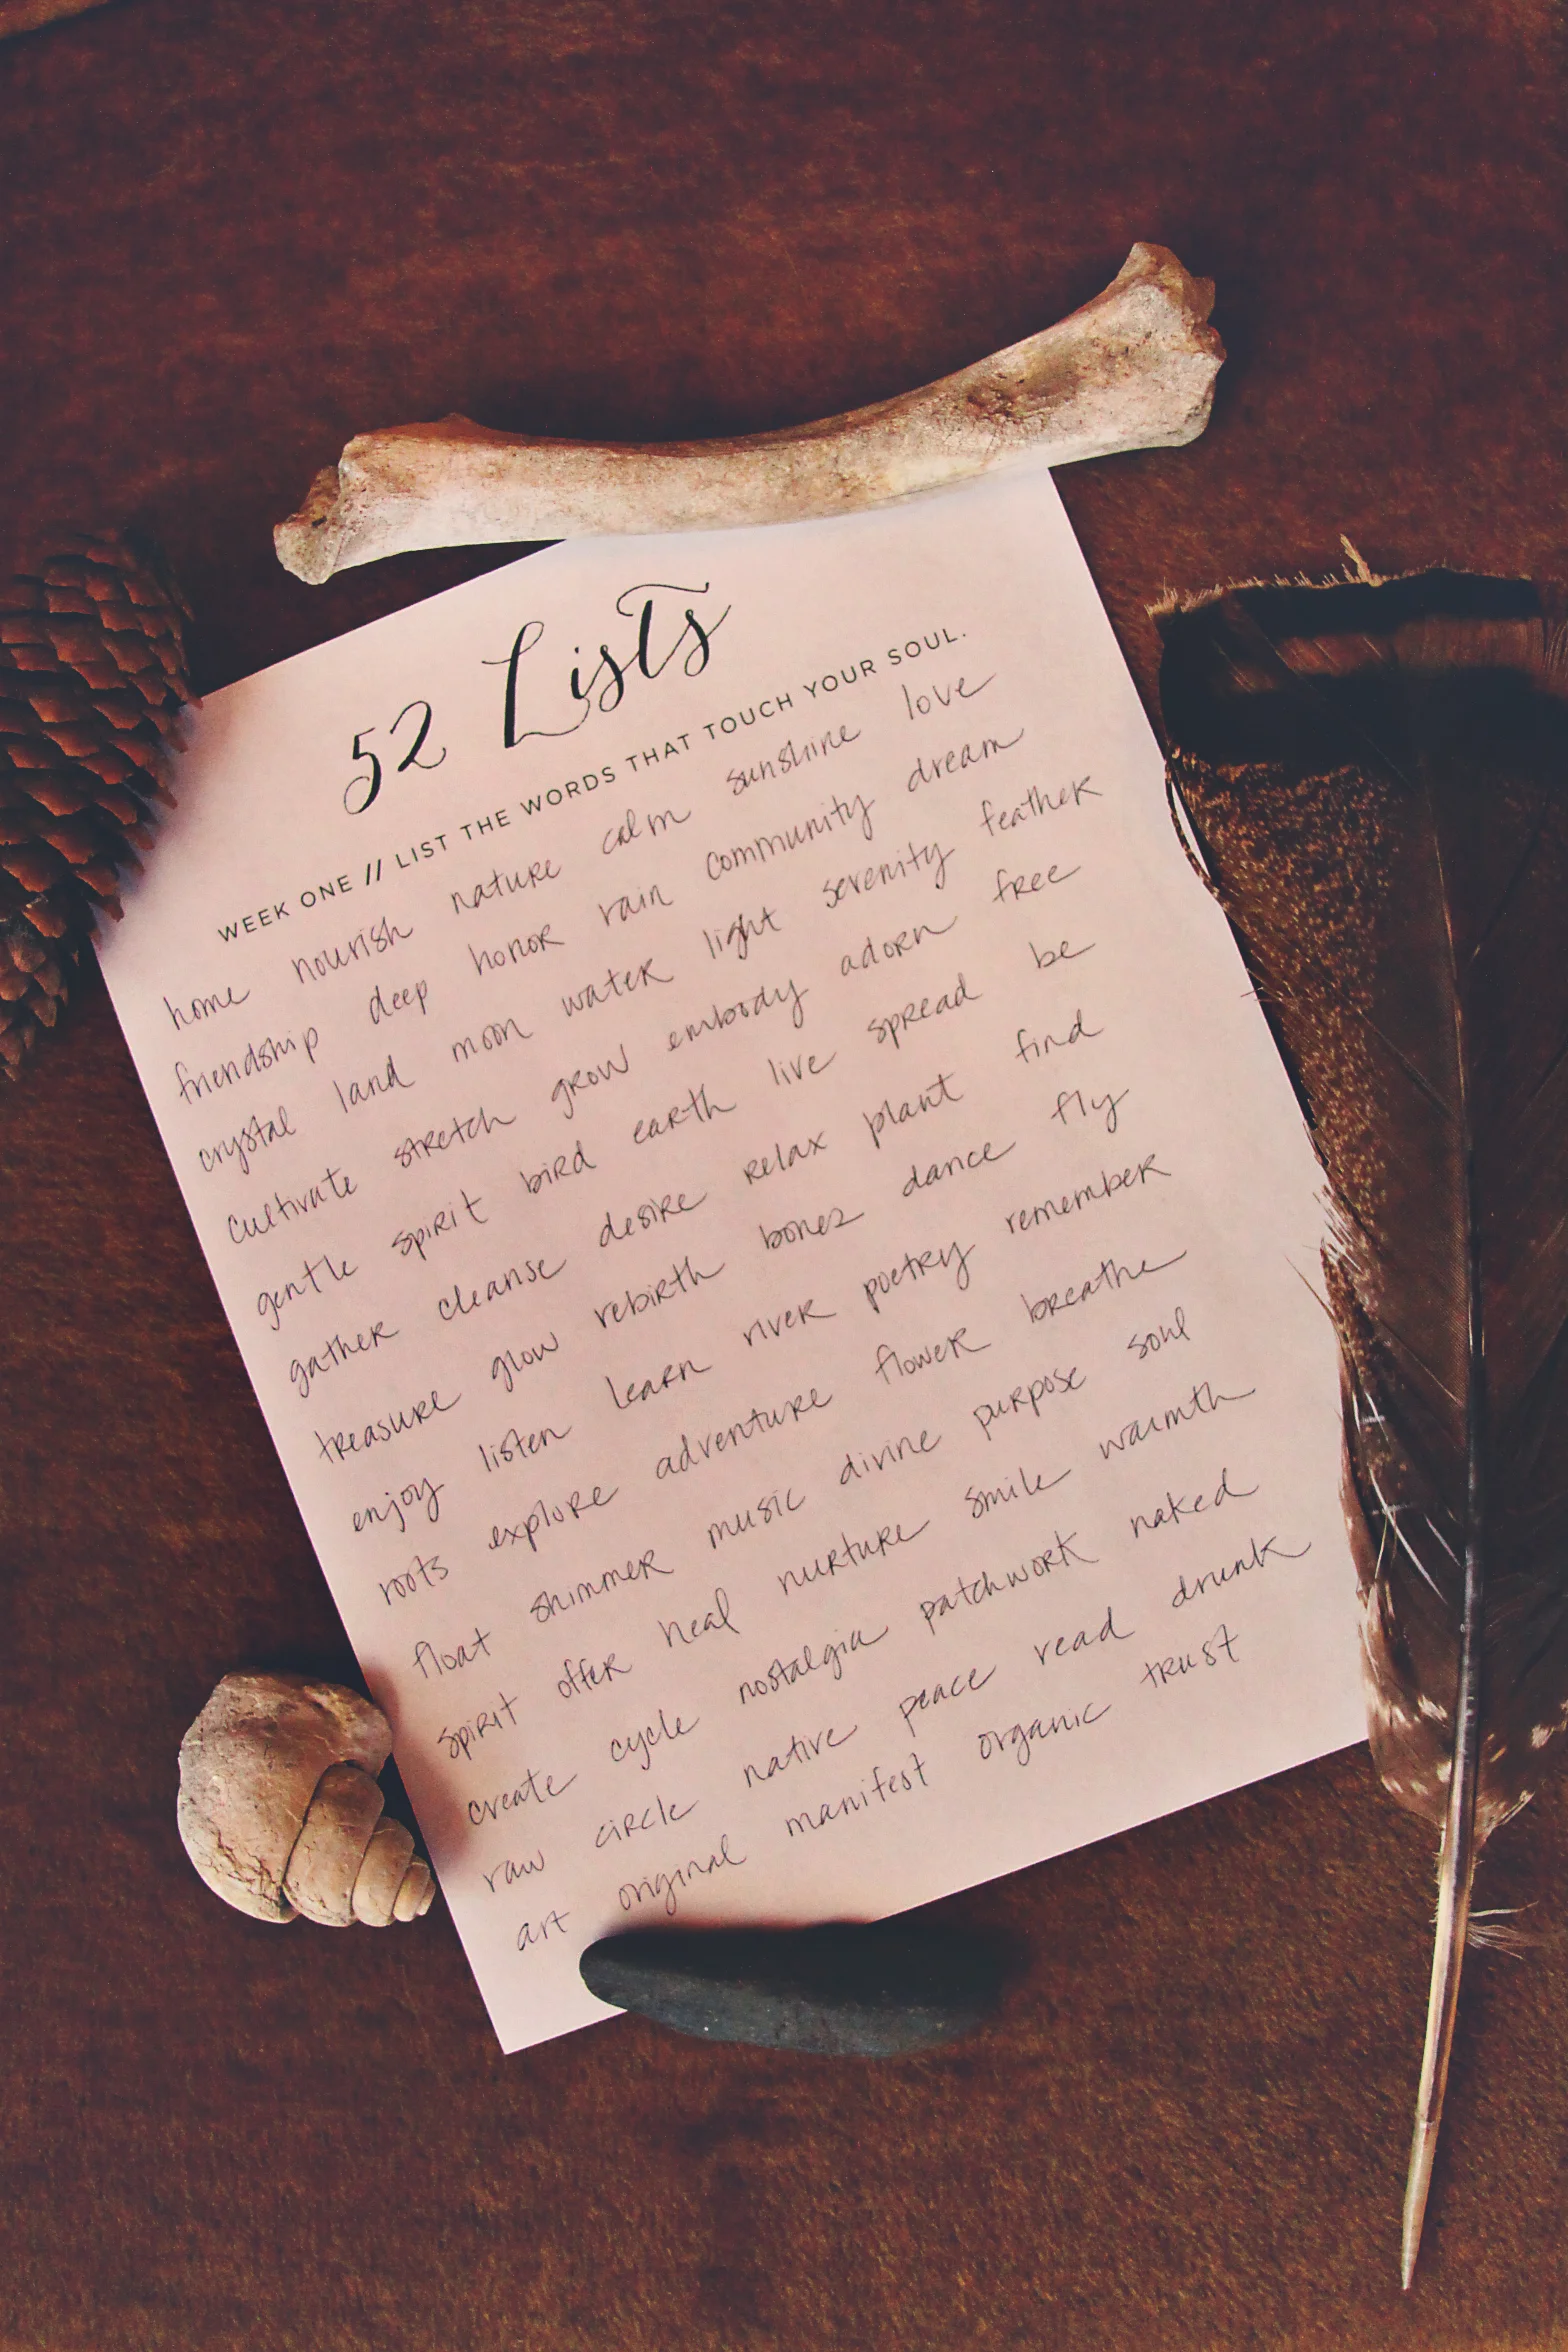 52 Lists
WEEK ONE // LIST THE WORDS THAT TOUCH YOUR SOUL.
home nourish nature calm sunshine love
friendship deep honor rain community dream
crystal land moon water light serenity feather
cultivate stretch grow embody adorn free
gentle spirit bird earth live spread be
gather cleanse desire relax plant find
treasure glow rebirth bones dance fly
enjoy listen learn river poetry remember
roots explore adventure flower breathe
float shimmer music divine purpose soul
spirit offer heal nurture smile warmth
create cycle nostalgia patchwork naked
raw circle native peace read drunk
art original manifest organic trust